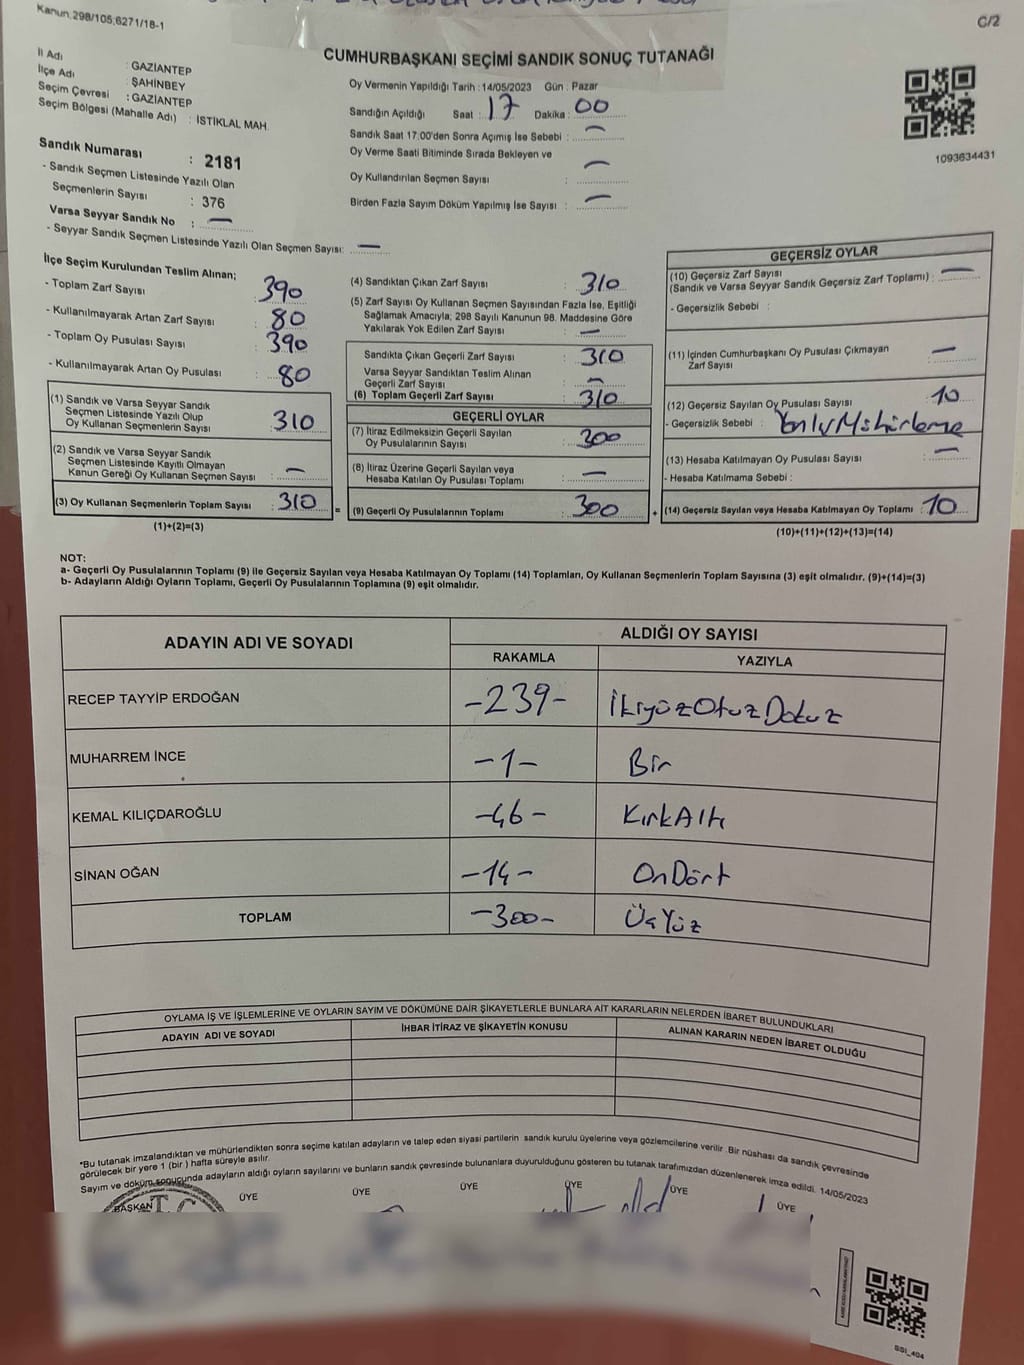 Kanun,298/105,6271/18-1
C/2
CUMHURBAŞKANI SEÇİMİ SANDIK SONUÇ TUTANAĞI
İl Adı : GAZİANTEP
İlçe Adı : ŞAHİNBEY
Seçim Çevresi : GAZİANTEP
Seçim Bölgesi (Mahalle Adı) : İSTİKLAL MAH.
Sandık Numarası : 2181
- Sandık Seçmen Listesinde Yazılı Olan
Seçmenlerin Sayısı : 376
Varsa Seyyar Sandık No : —
- Seyyar Sandık Seçmen Listesinde Yazılı Olan Seçmen Sayısı: —
Oy Vermenin Yapıldığı Tarih : 14/05/2023 Gün : Pazar
Sandığın Açıldığı Saat : 17 Dakika : 00
Sandık Saat 17:00'den Sonra Açımış İse Sebebi : —
Oy Verme Saati Bitiminde Sırada Bekleyen ve
Oy Kullandırılan Seçmen Sayısı : —
Birden Fazla Sayım Döküm Yapılmış İse Sayısı : —
1093634431
İlçe Seçim Kurulundan Teslim Alınan;
- Toplam Zarf Sayısı : 390
- Kullanılmayarak Artan Zarf Sayısı : 80
- Toplam Oy Pusulası Sayısı : 390
- Kullanılmayarak Artan Oy Pusulası : 80
(1) Sandık ve Varsa Seyyar Sandık
Seçmen Listesinde Yazılı Olup
Oy Kullanan Seçmenlerin Sayısı : 310
(2) Sandık ve Varsa Seyyar Sandık
Seçmen Listesinde Kayıtlı Olmayan
Kanun Gereği Oy Kullanan Seçmen Sayısı : —
(3) Oy Kullanan Seçmenlerin Toplam Sayısı : 310
(1)+(2)=(3)
=
(4) Sandıktan Çıkan Zarf Sayısı : 310
(5) Zarf Sayısı Oy Kullanan Seçmen Sayısından Fazla İse, Eşitliği
Sağlamak Amacıyla; 298 Sayılı Kanunun 98. Maddesine Göre
Yakılarak Yok Edilen Zarf Sayısı : —
Sandıkta Çıkan Geçerli Zarf Sayısı : 310
Varsa Seyyar Sandıktan Teslim Alınan
Geçerli Zarf Sayısı : —
(6) Toplam Geçerli Zarf Sayısı : 310
GEÇERLİ OYLAR
(7) İtiraz Edilmeksizin Geçerli Sayılan
Oy Pusulalarının Sayısı : 300
(8) İtiraz Üzerine Geçerli Sayılan veya
Hesaba Katılan Oy Pusulası Toplamı : —
(9) Geçerli Oy Pusulalarının Toplamı : 300
+
GEÇERSİZ OYLAR
(10) Geçersiz Zarf Sayısı
(Sandık ve Varsa Seyyar Sandık Geçersiz Zarf Toplamı) : —
- Geçersizlik Sebebi :
(11) İçinden Cumhurbaşkanı Oy Pusulası Çıkmayan
Zarf Sayısı : —
(12) Geçersiz Sayılan Oy Pusulası Sayısı : 10
- Geçersizlik Sebebi : Yanlış Mühürleme
(13) Hesaba Katılmayan Oy Pusulası Sayısı : —
- Hesaba Katılmama Sebebi :
(14) Geçersiz Sayılan veya Hesaba Katılmayan Oy Toplamı : 10
(10)+(11)+(12)+(13)=(14)
NOT:
a- Geçerli Oy Pusulalarının Toplamı (9) ile Geçersiz Sayılan veya Hesaba Katılmayan Oy Toplamı (14) Toplamları, Oy Kullanan Seçmenlerin Toplam Sayısına (3) eşit olmalıdır. (9)+(14)=(3)
b- Adayların Aldığı Oyların Toplamı, Geçerli Oy Pusulalarının Toplamına (9) eşit olmalıdır.
ADAYIN ADI VE SOYADI ALDIĞI OY SAYISI
RAKAMLA YAZIYLA
RECEP TAYYİP ERDOĞAN -239- İkiyüzOtuzDokuz
MUHARREM İNCE -1- Bir
KEMAL KILIÇDAROĞLU -46- KırkAltı
SİNAN OĞAN -14- OnDört
TOPLAM -300- ÜçYüz
OYLAMA İŞ VE İŞLEMLERİNE VE OYLARIN SAYIM VE DÖKÜMÜNE DAİR ŞİKAYETLERLE BUNLARA AİT KARARLARIN NELERDEN İBARET BULUNDUKLARI
ADAYIN ADI VE SOYADI İHBAR İTİRAZ VE ŞİKAYETİN KONUSU ALINAN KARARIN NEDEN İBARET OLDUĞU
*Bu tutanak imzalandıktan ve mühürlendikten sonra seçime katılan adayların ve talep eden siyasi partilerin sandık kurulu üyelerine veya gözlemcilerine verilir. Bir nüshası da sandık çevresinde
görülecek bir yere 1 (bir) hafta süreyle asılır.
Sayım ve döküm sonucunda adayların aldığı oyların sayılarını ve bunların sandık çevresinde bulunanlara duyurulduğunu gösteren bu tutanak tarafımızdan düzenlenerek imza edildi. 14/05/2023
BAŞKAN ÜYE ÜYE ÜYE ÜYE ÜYE ÜYE
T.C.
SSI_404